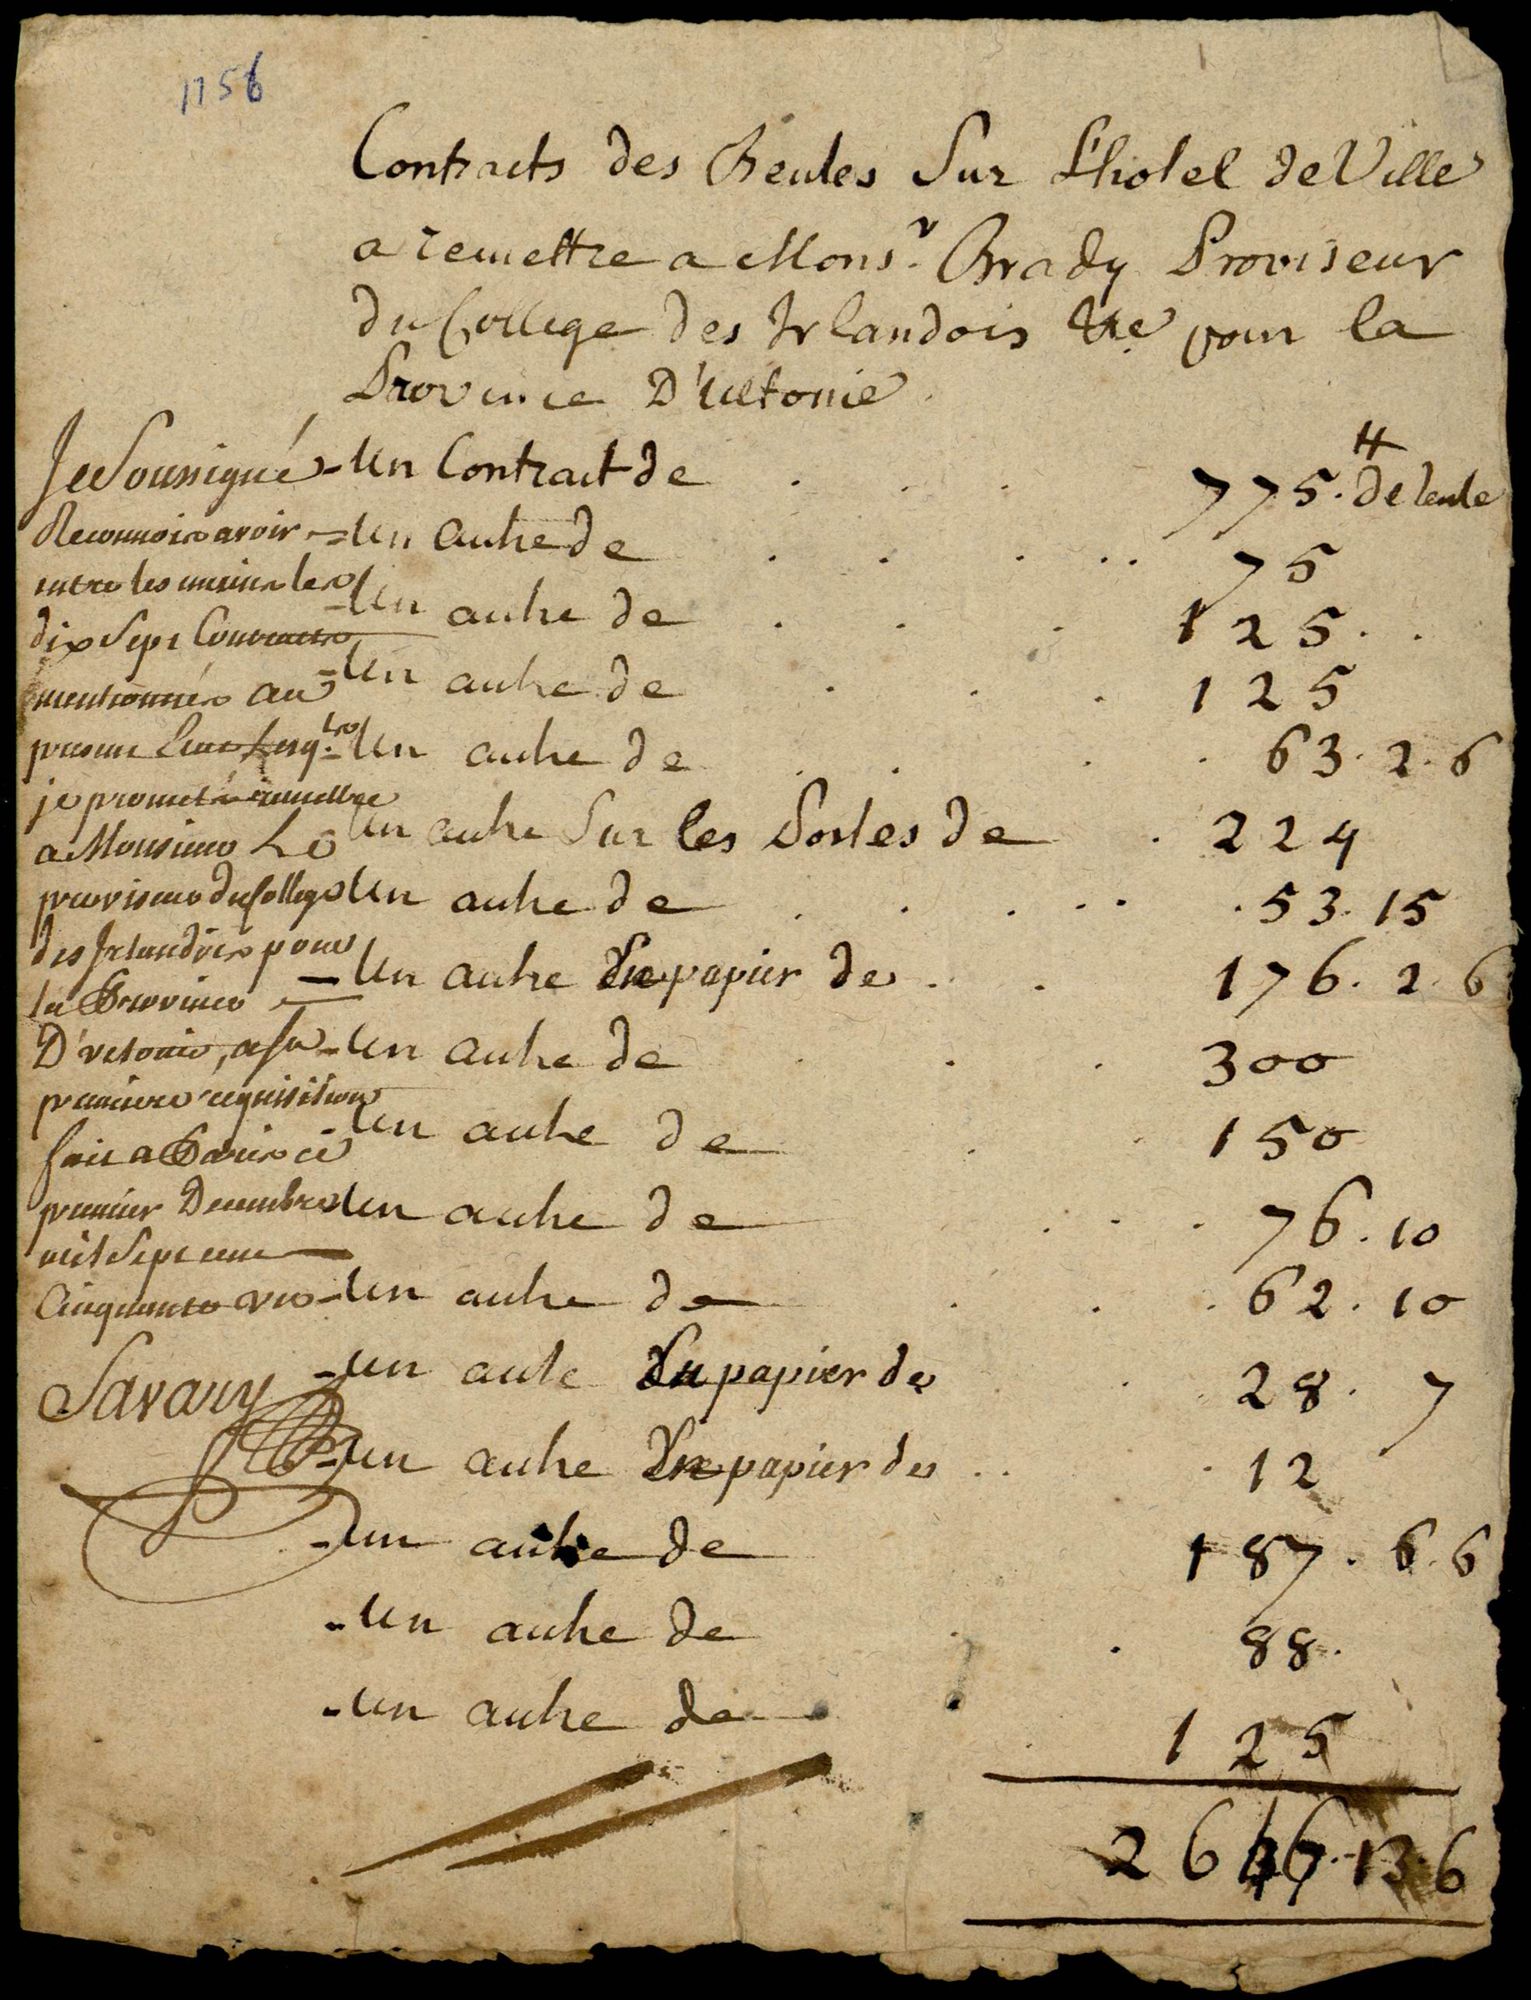 1756
Contracts des Rentes Sur L'hotel de Ville
a remettre a Monsr. Brady Proviseur
du College des Irlandois &c. pour la
Province D'Ultonie.
Je Soussigné
Reconnois avoir
entre les mains les
dix Sept Contracts
mentionnés au
present
je promets remettre
a Monsieur Le
proviseur du College
des Irlandois pour
la Province
D'vltonie, a sa
premiere requisition
fait a Paris ce
premier Decembre
mil Sept cent
Cinquante
Savary
-Un Contract de . . . 775.ₜₜ de rente
=Un autre de . . . . . 75
-Un autre de . . . 125 . .
-Un autre de . . . 125
Un autre de . . . . 63.2.6
Un autre Sur les Postes de . 224
Un autre de . . . . . . 53.15
-Un autre En papier de . . 176.2.6
-Un autre de . . . 300
Un autre de . . 150
Un autre de . . . 76.10
-Un autre de . . . 62.10
-un aute En papier de . . 28. 7
-un autre En papier de . . . 12
-un autre de 187.6.6
-un autre de . . 88.
-un autre de . 125